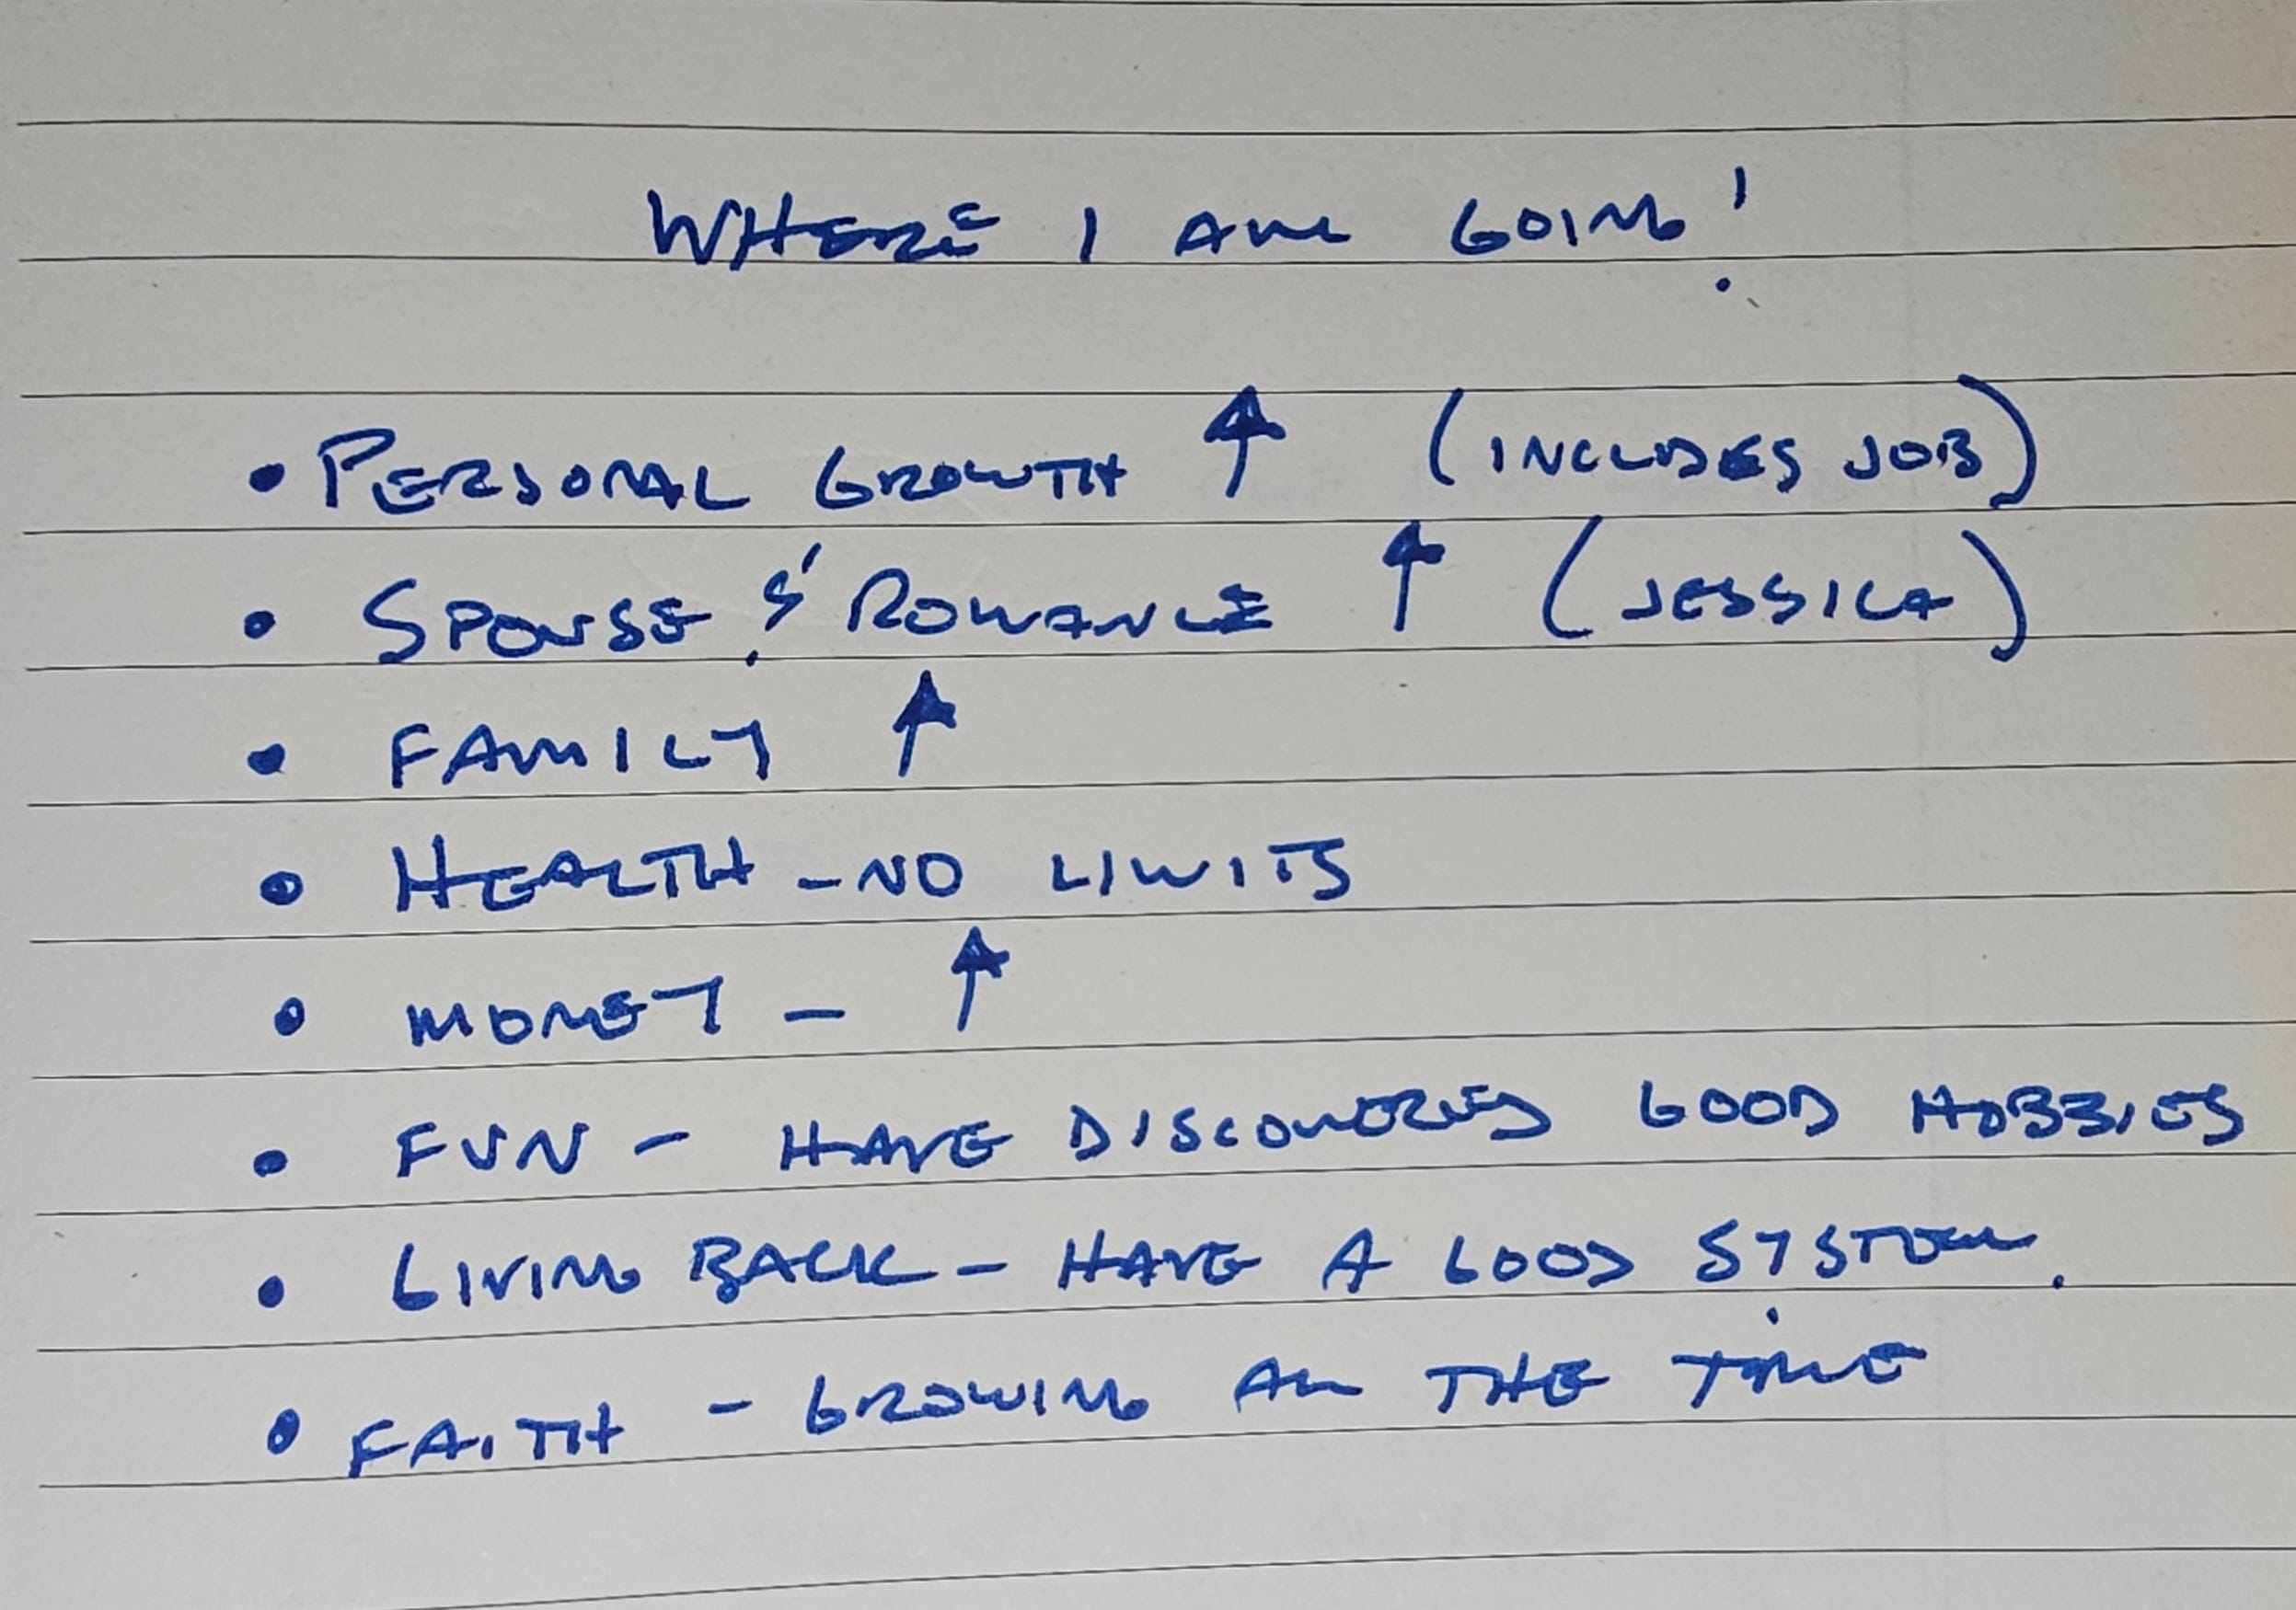 WHERE I AM GOING!
• PERSONAL GROWTH ↑ (INCLUDES JOB)
• SPOUSE & ROMANCE ↑ (JESSICA)
• FAMILY ↑
• HEALTH - NO LIMITS
• MONEY - ↑
• FUN - HAVE DISCOVERED GOOD HOBBIES
• GIVING BACK - HAVE A GOOD SYSTEM.
• FAITH - GROWING ALL THE TIME